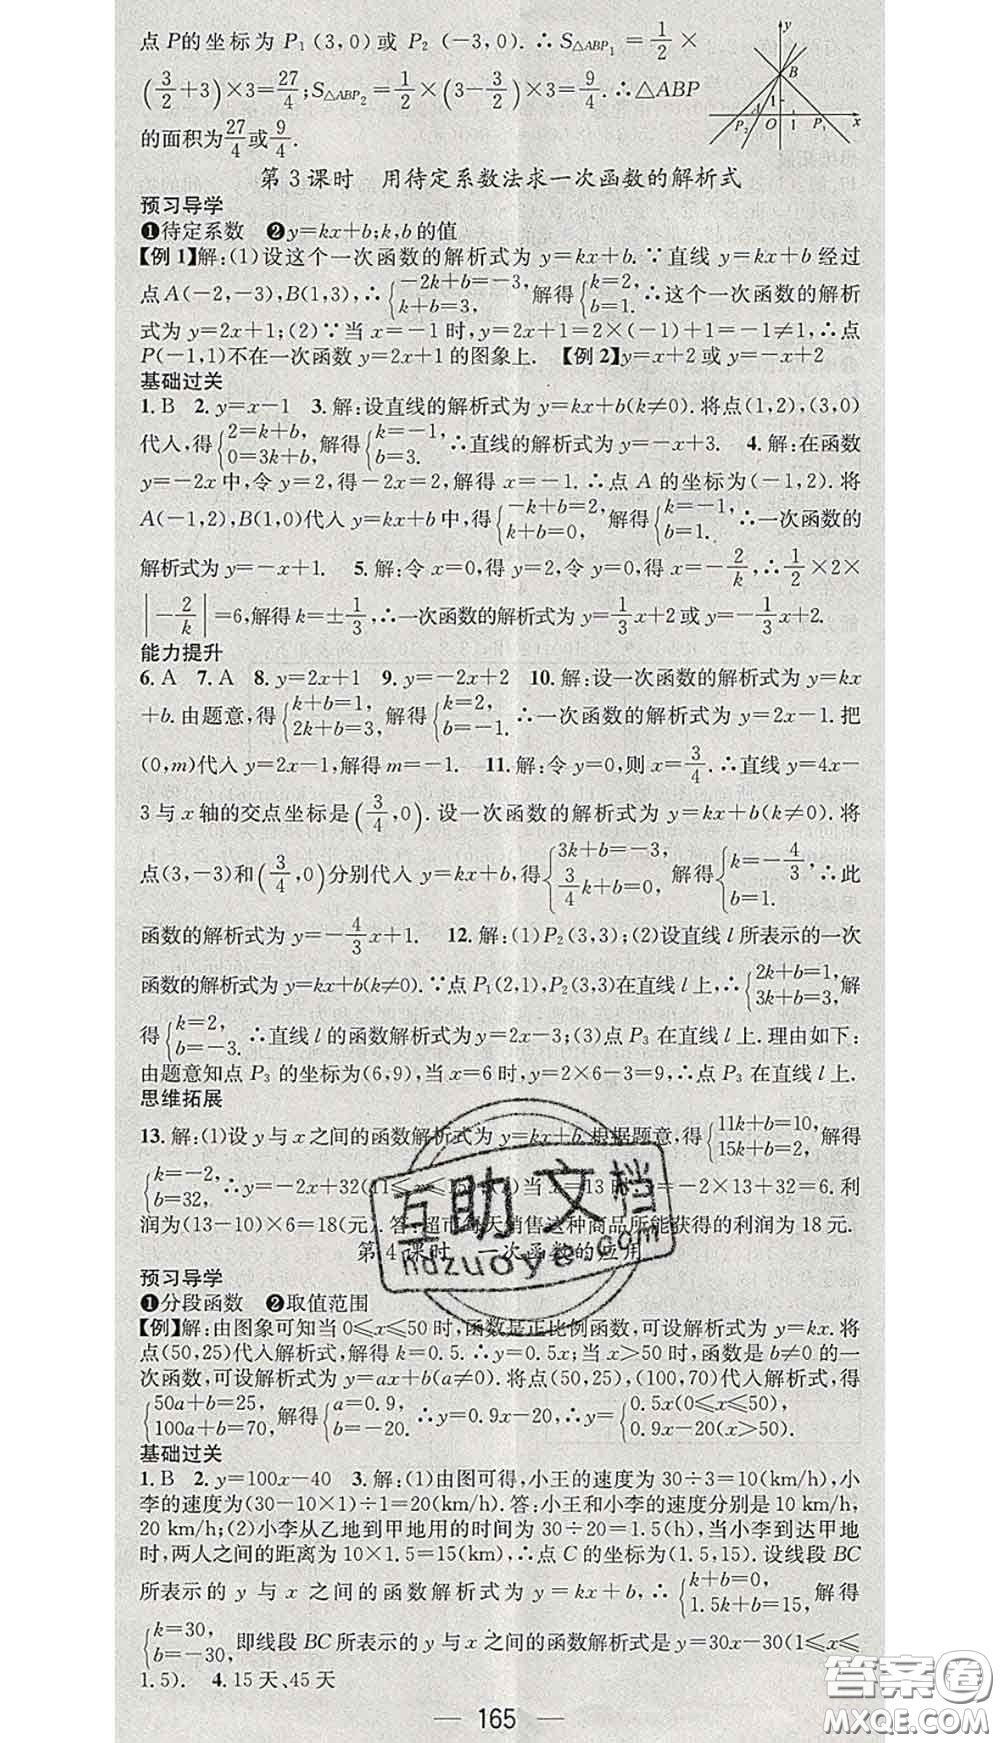 点P的坐标为 P₁(3,0)或 P₂(-3,0). ∴S△ABP₁=1/2×
(3/2+3)×3=27/4;S△ABP₂=1/2×(3-3/2)×3=9/4.∴△ABP
的面积为27/4或9/4.
y
B
A
1
P₂ O 1 P₁ x
第3课时 用待定系数法求一次函数的解析式
预习导学
❶待定系数 ❷y=kx+b;k,b的值
【例1】解:(1)设这个一次函数的解析式为 y=kx+b.∵直线 y=kx+b经过
点A(-2,-3),B(1,3),∴{-2k+b=-3, k+b=3, 解得{k=2, b=1. ∴这个一次函数的解析
式为y=2x+1;(2)∵当x=-1时,y=2x+1=2×(-1)+1=-1≠1,∴点
P(-1,1)不在一次函数y=2x+1的图象上. 【例2】y=x+2或y=-x+2
基础过关
1.B 2.y=x-1 3.解:设直线的解析式为y=kx+b(k≠0).将点(1,2),(3,0)
代入,得{2=k+b, 0=3k+b, 解得{k=-1, b=3. ∴直线的解析式为y=-x+3. 4.解:在函数
y=-2x中,令y=2,得-2x=2,解得x=-1.∴点A的坐标为(-1,2).将
A(-1,2),B(1,0)代入y=kx+b中,得{-k+b=2, k+b=0, 解得{k=-1, b=1. ∴一次函数的
解析式为y=-x+1. 5.解:令x=0,得y=2,令y=0,得x=-2/k,∴1/2×2×
|-2/k|=6,解得k=±1/3,∴一次函数的解析式为y=1/3x+2或y=-1/3x+2.
能力提升
6.A 7.A 8.y=2x+1 9.y=-2x+2 10.解:设一次函数的解析式为y=kx
+b.由题意,得{k+b=1, 2k+b=3, 解得{k=2, b=-1. ∴一次函数的解析式为y=2x-1.把
(0,m)代入y=2x-1,解得m=-1. 11.解:令y=0,则x=3/4.∴直线y=4x-
3与x轴的交点坐标是(3/4,0).设一次函数的解析式为y=kx+b(k≠0).将
点(3,-3)和(3/4,0)分别代入y=kx+b,得{3k+b=-3, 3/4k+b=0, 解得{k=-4/3, b=1. ∴此
函数的解析式为y=-4/3x+1. 12.解:(1)P₂(3,3);(2)设直线l所表示的一次
函数的解析式为y=kx+b(k≠0).∵点P₁(2,1),P₂(3,3)在直线l上,∴{2k+b=1, 3k+b=3, 解
得{k=2, b=-3. ∴直线l的函数解析式为y=2x-3;(3)点P₃在直线l上.理由如下:
由题意知点P₃的坐标为(6,9),当x=6时,y=2×6-3=9,∴点P₃在直线l上.
思维拓展
13.解:(1)设y与x之间的函数解析式为y=kx+b.根据题意,得{11k+b=10, 15k+b=2, 解得
{k=-2, b=32, ∴y=-2x+32(11≤x≤15);(2)当x=13时,y=-2×13+32=6.利
润为(13-10)×6=18(元).答:超市每天销售这种商品所能获得的利润为18元.
第4课时 一次函数的应用
预习导学
❶分段函数 ❷取值范围
【例】解:由图象可知当0≤x≤50时,函数是正比例函数,可设解析式为y=kx.将
点(50,25)代入解析式,解得k=0.5.∴y=0.5x;当x>50时,函数是b≠0的一
次函数,可设解析式为y=ax+b(a≠0).将点(50,25),(100,70)代入解析式,得
{50a+b=25, 100a+b=70, 解得{a=0.9, b=-20. ∴y=0.9x-20,∴y={0.5x(0≤x≤50), 0.9x-20(x>50).
基础过关
1.B 2.y=100x-40 3.解:(1)由图可得,小王的速度为30÷3=10(km/h),小
李的速度为(30-10×1)÷1=20(km/h).答:小王和小李的速度分别是10 km/h,
20 km/h;(2)小李从乙地到甲地用的时间为30÷20=1.5(h),当小李到达甲地
时,两人之间的距离为10×1.5=15(km),∴点C的坐标为(1.5,15).设线段BC
所表示的y与x之间的函数解析式为y=kx+b,∴{k+b=0, 1.5k+b=15, 解得
{k=30, b=-30, 即线段BC所表示的y与x之间的函数解析式是y=30x-30(1≤x≤
1.5). 4.15天、45天
— 165 —
互助文档
hdzuoye.com
答案卷
MXQE.COM